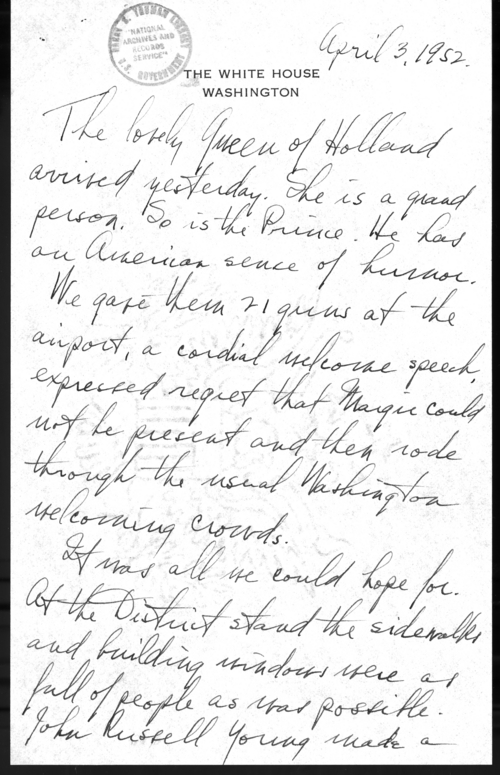 HARRY S. TRUMAN LIBRARY
"NATIONAL
ARCHIVES AND
RECORDS
SERVICE"
U.S. GOVERNMENT
April 3, 1952.
THE WHITE HOUSE
WASHINGTON
The lovely Queen of Holland
arrived yesterday. She is a grand
person. So is the Prince. He has
an American sence of humor.
We gave them 21 guns at the
airport, a cordial welcome speech,
expressed regret that Margie could
not be present and then rode
through the usual Washington
welcoming crowds.
It was all we could hope for.
At the District stand the sidewalks
and building windows were as
full of people as was possible.
John Russell Young made a